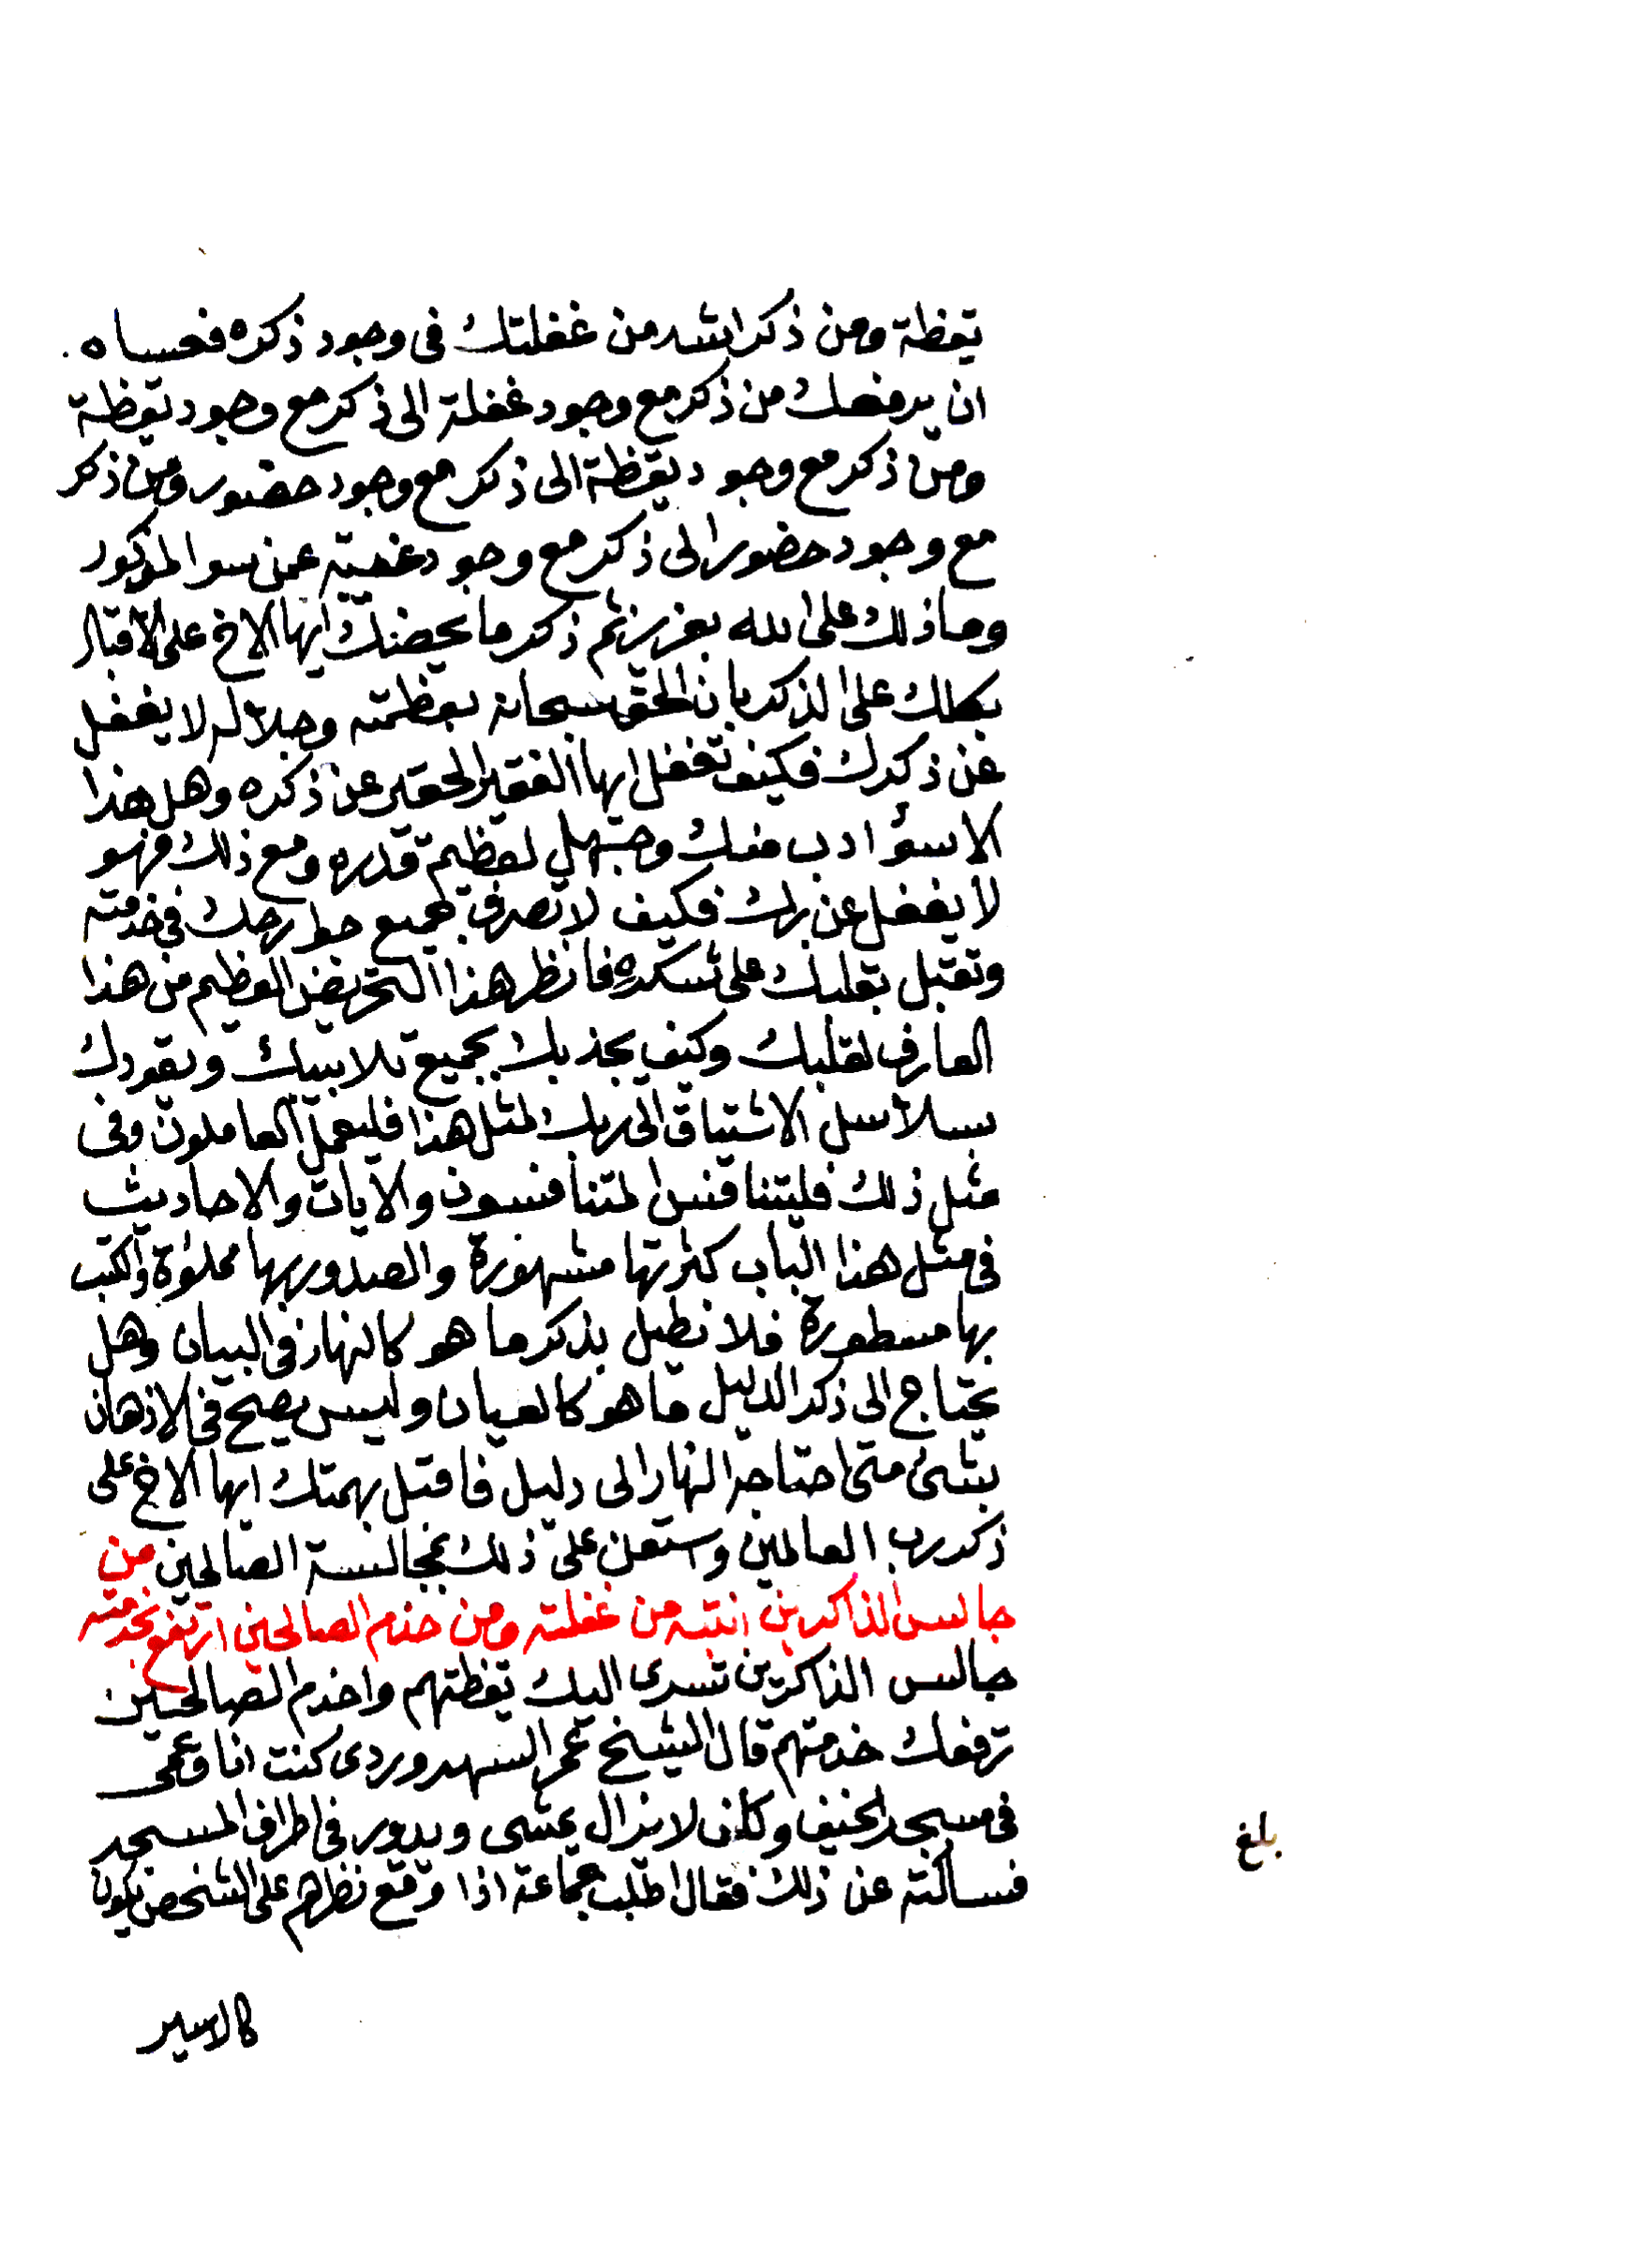 يقظة ومن ذكر اشد من غفلتك فى وجود ذكره فعساه.
ان يرفعك من ذكر مع وجود غفلة الى ذكر مع وجود يقظة
ومن ذكر مع وجود يقظة الى ذكر مع وجود حضور ومن ذكر
مع وجود حضور الى ذكر مع وجود غيبة عمن سوا المذكور
وما ذلك على الله بعزيز ثم ذكر ما يحضك ايها الاخ على الاقبال
بكلك على الذكر بان الحق سبحانه بعظمته وجلاله لا يغفل
عن ذكرك فكيف تغفل ايها الفقير الحقير عن ذكره وهل هذا
الا سؤ ادب منك وجهل لعظيم قدره ومع ذلك فهو
لا يغفل عن برك فكيف لا تصرف جميع حط رحك فى خدمته
وتقبل بقلبك على شكره فانظر هذا التحريض العظيم من هذا
العارف لقلبك وكيف يجذبك بجميع تلابيبك ويقودك
بسلاسل الاشتياق الى ربك لمثل هذا فليعمل العاملون وفى
مثل ذلك فليتنافس المتنافسون والآيات والاحاديث
فى مثل هذا الباب كثرتها مشهورة والصدور بها مملوة والكتب
بها مسطورة فلا نطيل بذكر ما هو كالنهار فى البيان وهل
يحتاج الى ذكر الدليل ما هو كالعيان وليس يصح فى الاذهان
شئ متى احتاج النهار الى دليل فاقبل بهمتك ايها الاخ على
ذكر رب العالمين واستعن على ذلك بمجالسة الصالحين من
جالس الذاكرين انتبه من غفلته ومن خدم الصالحين ارتفع بخدمته
جالس الذاكرين تسرى اليك يقظتهم واخدم الصالحين
ترفعك خدمتهم قال الشيخ عمر السهروردى كنت انا وعمى
فى مسجد الخيف وكان لا يزال يمشى ويدور فى اطراف المسجد
فسألته عن ذلك فقال اطلب جماعة اذا وقع نظرهم على الشخص يكون
بلغ
كالاسير